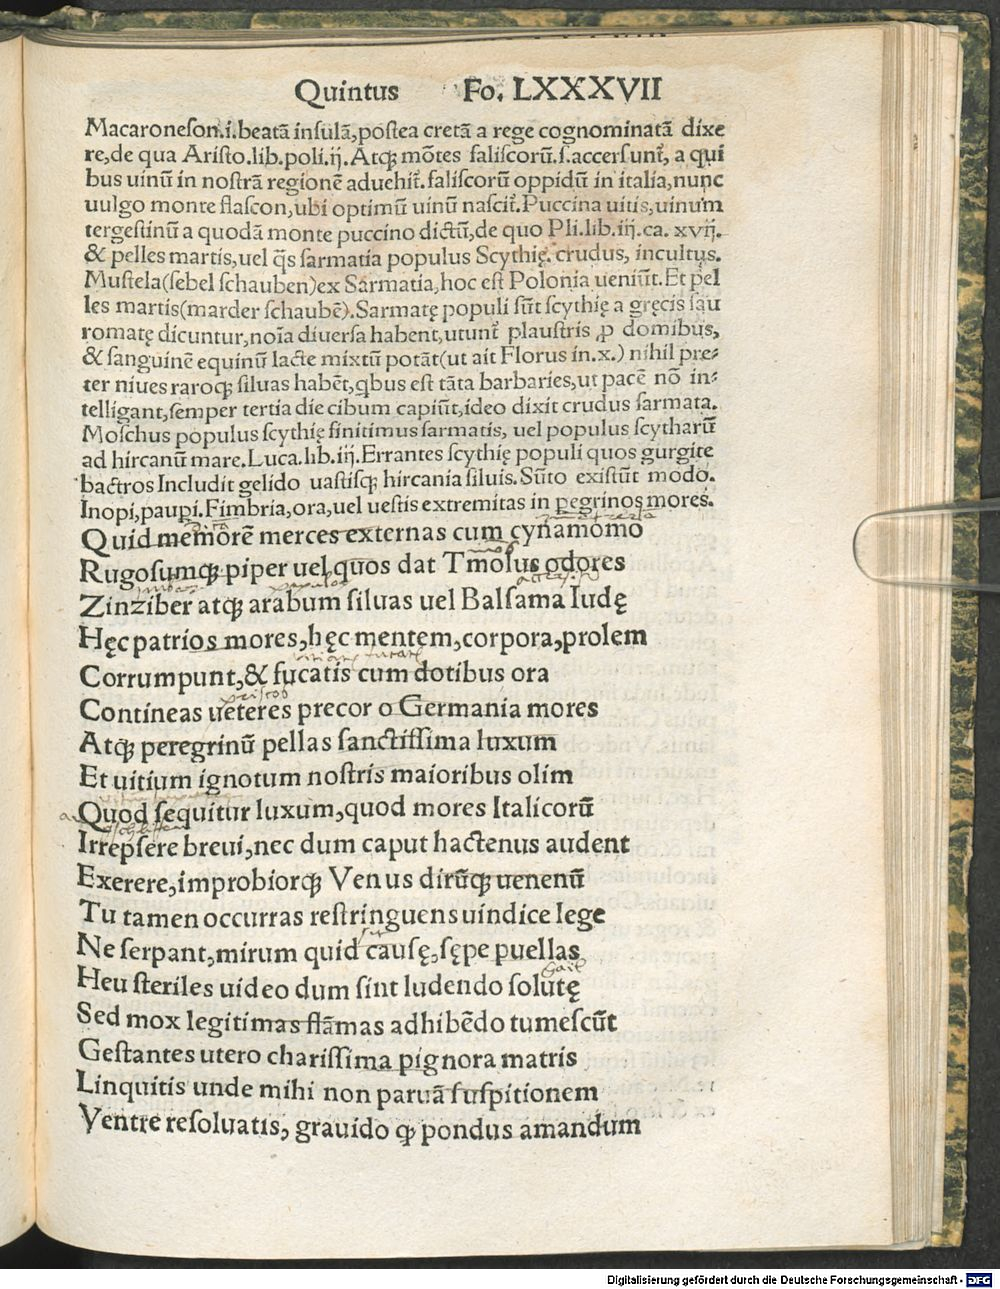 Quintus Fo. LXXXVII
Macaroneson.i.beatā insulā,postea cretā a rege cognominatā dixe
re,de qua Aristo.lib.poli.ij.Atqꝫ mōtes faliscorū.s.accersunt᷑, a qui
bus uinū in nostrā regionē aduehit᷑.faliscorū oppidū in italia,nunc
uulgo monte flascon,ubi optimū uinū nascit᷑.Puccina uitis,uinum
tergestinū a quodā monte puccino dictū,de quo Pli.lib.iij.ca. xvij.
& pelles martis,uel q̄s sarmatia populus Scythię. crudus, incultus.
Mustela(sebel schauben)ex Sarmatia,hoc est Polonia ueniūt.Et pel
les martis(marder schaubē).Sarmatę populi sūt scythię a gręcis sau
romatę dicuntur,noīa diuersa habent,utunt᷑ plaustris ,p domibus,
& sanguinē equinū lacte mixtū potāt(ut ait Florus in.x.) nihil pre-
ter niues raroqꝫ siluas habēt,qbus est tāta barbaries,ut pacē nō in-
telligant,semper tertia die cibum capiūt,ideo dixit crudus sarmata.
Moschus populus scythię finitimus sarmatis, uel populus scytharū
ad hircanū mare.Luca.lib.iij.Errantes scythię populi quos gurgite
bactros Includit gelido uastisqꝫ hircania siluis.Sūto existūt modo.
Inopi,paupi.Fimbria,ora,uel uestis extremitas in pegrinos mores.
Quid memorē merces externas cum cynamomo
Rugosumqꝫ piper uel quos dat Tmolus odores
Zinziber atqꝫ arabum siluas uel Balsama Iudę
Hęc patrios mores,hęc mentem,corpora,prolem
Corrumpunt,& fucatis cum dotibus ora
Contineas ueteres precor o Germania mores
Atqꝫ peregrinū pellas sanctissima luxum
Et uitium ignotum nostris maioribus olim
Quod sequitur luxum,quod mores Italicorū
Irrepsere breui,nec dum caput hactenus audent
Exerere,improbiorqꝫ Venus dirūqꝫ uenenū
Tu tamen occurras restringuens uindice lege
Ne serpant,mirum quid causę,sępe puellas
Heu steriles uideo dum sint ludendo solutę
Sed mox legitimas flāmas adhibēdo tumescūt
Gestantes utero charissima pignora matris
Linquitis unde mihi non paruā suspitionem
Ventre resoluatis, grauido qꝫ pondus amandum
Digitalisierung gefördert durch die Deutsche Forschungsgemeinschaft - DFG